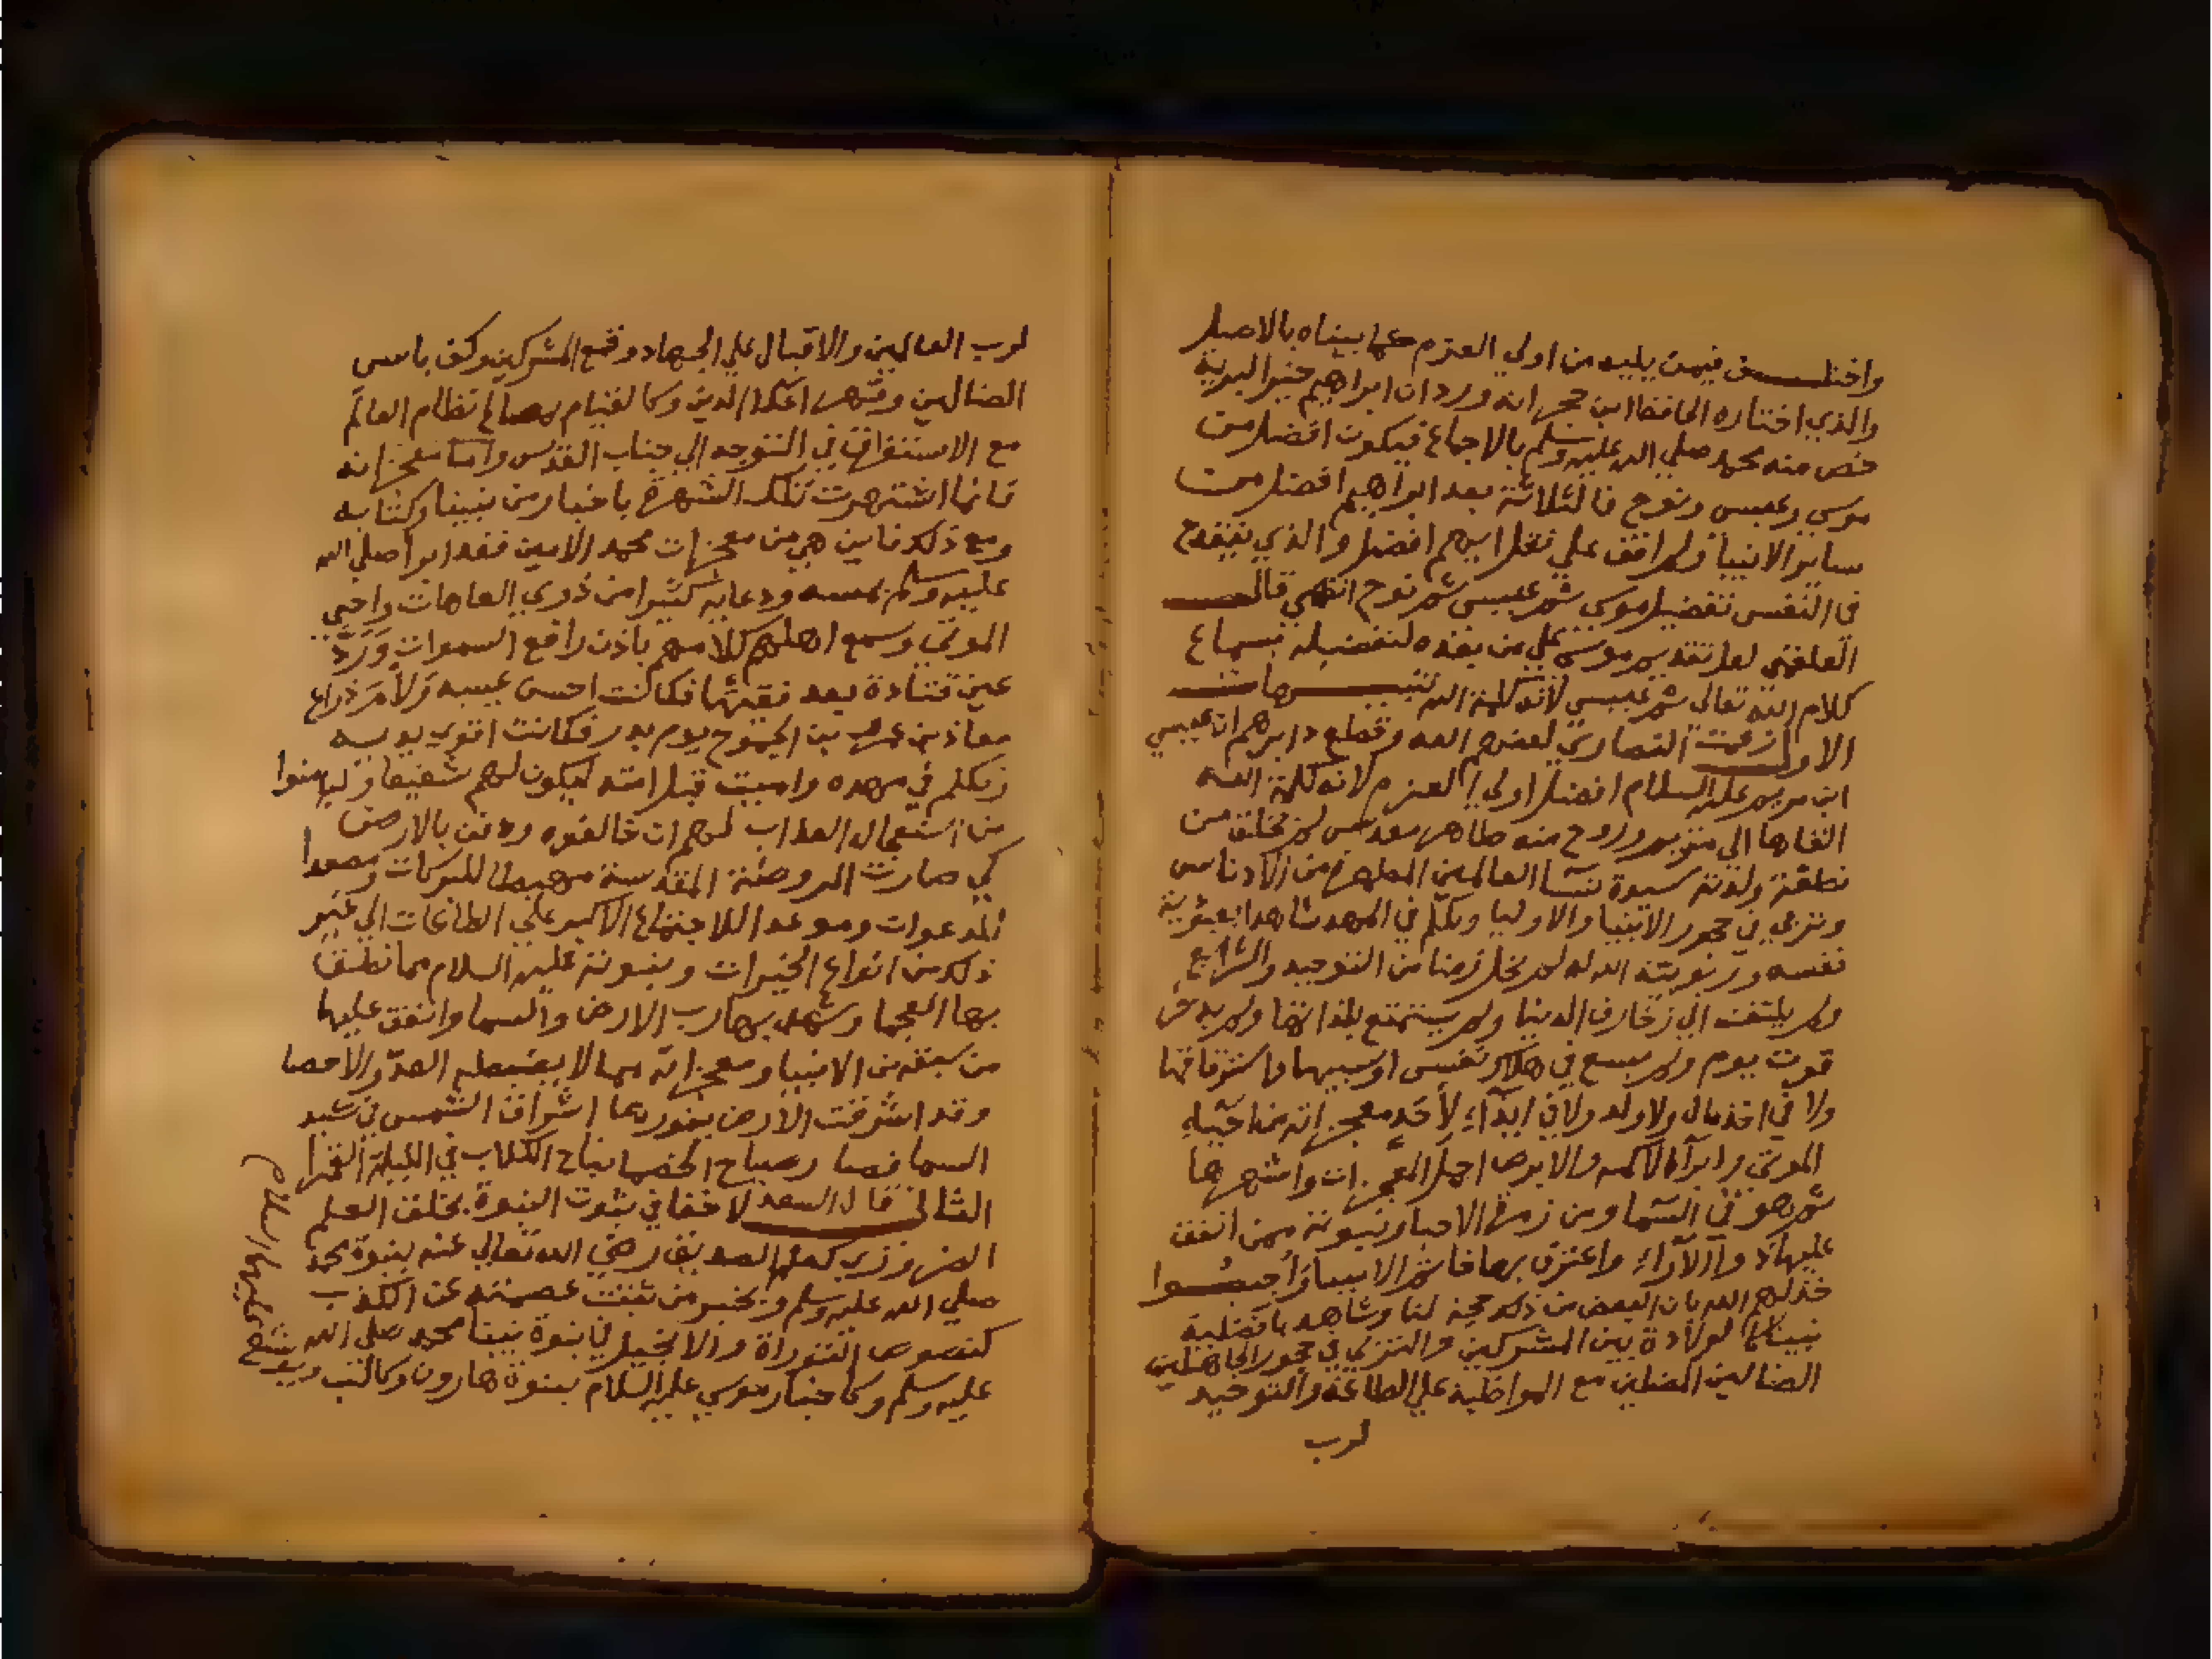 واختلـــف فيمن يليه من اولي العزم علي ما بيناه بالاصل
والذي اختاره الحافظ ابن حجر انه ورد ان ابراهيم خير البرية
خص منه محمد صلي الله عليه وسلم بالاجماع فيكون افضل من
موسي وعيسي ونوح فالثلاثة بعد ابراهيم افضل من
ساير الانبيا ولم اقف علي نقل ايهم افضل والذي ينقدح
في النفس تفضيل موسي ثم عيسي ثم نوح انتهي قال
العلقمي لعل تقديم موسي علي من بعده لتفضيله بسماع
كلام الله تعالي ثم عيسي لانه كلمة الله تنبيـــهات
الاول زعمت النصاري لعنهم الله وقطع دابرهم ان عيسي
ابن مريم عليه السلام افضل اولي العزم لانه كلمة الله
القاها الي مريم وروح منه طاهر مقدس لم يخلق من
نطفة ولدته سيدة نسا العالمين المطهرة من الادناس
وتربي في حجور الانبيا والاوليا وتكلم في المهد شاهدا بعبودية
نفسه وربوبية الله لم يخل زمنا من التوحيد والشرايع
ولم يلتفت الي زخارف الدنيا ولم يستمتع بلذاتها ولم يدخر
قوت يوم ولم يسع في هلاك نفس او سبيها او استرقاقها
ولا في اخذ مال ولا ولد ولا في ايذاء لاحد معجزاته من احياء
الموتي وابراء الاكمه والابرص اجل المعجزات واشهرها
ثم هو في السما ومن زمرة الاحيا ونبوته ممن اتفق
عليها ذوا الآراء واعترف بها خاتم الانبيا واجيبـــوا
خذلهم الله بان البعض من ذلك حجة لنا وشاهد بافضلية
نبينا كالولادة بين المشركين والتربي في حجور الجاهلين
الضالين المضلين مع المواظبة علي الطاعة والتوحيد
لرب
لرب العالمين والاقبال علي الجهاد وقمع المشركين وكف باس
الضالين وقهر اعداء الدين وكالقيام بمصالح نظام العالم
مع الاستغراق في التوجه الي جناب القدس واما معجزاته
فانما اشتهرت تلك الشهرة باخبار من نبينا وكتابه
ومع ذلك فاين هي من معجزات محمد الامين فقد ابرا صلي الله
عليه وسلم بمسه ودعايه كثيرا من ذوي العاهات واحيي
الموتي وسمع اهلهم كلامهم باذن رافع السموات ورد
عين قتادة بعد فقئها فكانت احسن عينيه ولام ذراع
معاذ بن عمرو بن الجموح يوم بدر فكانت اقوي يديه
وتكلم في مهده واميت قبل امته ليكون لهم شفيعا وليامنوا
من استعجال العذاب لهم ان خالفوه ودفن بالارض
كي صارت الروضة المقدسة مهبطا للبركات ومصعدا
للدعوات وموعدا للاجتماع الاكبر علي الطاعات الي غير
ذلك من انواع الخيرات ونبوته عليه السلام مما نطق
بها العجما وشهد بها رب الارض والسما واتفق عليها
من سبقه من الانبيا ومعجزاته مما لا يضبطه العد والاحصا
وقد اشرقت الارض بنور ربها اشراق الشمس في كبد
السما فصا رصياح الخصما نباح الكلاب في الليلة القمرا
الثاني قال السعد لا خفا في ثبوت النبوة بخلق العلم
الضروري كعلم الصديق رضي الله تعالي عنه بنبوة محمد
صلي الله عليه وسلم وبخبر من ثبتت عصمته عن الكذب
كنصوص التوراة والانجيل في نبوة نبينا محمد صلي الله
عليه وسلم وكاخبار موسي عليه السلام بنبوة هارون وكالب ويوشع
عليهم السلام